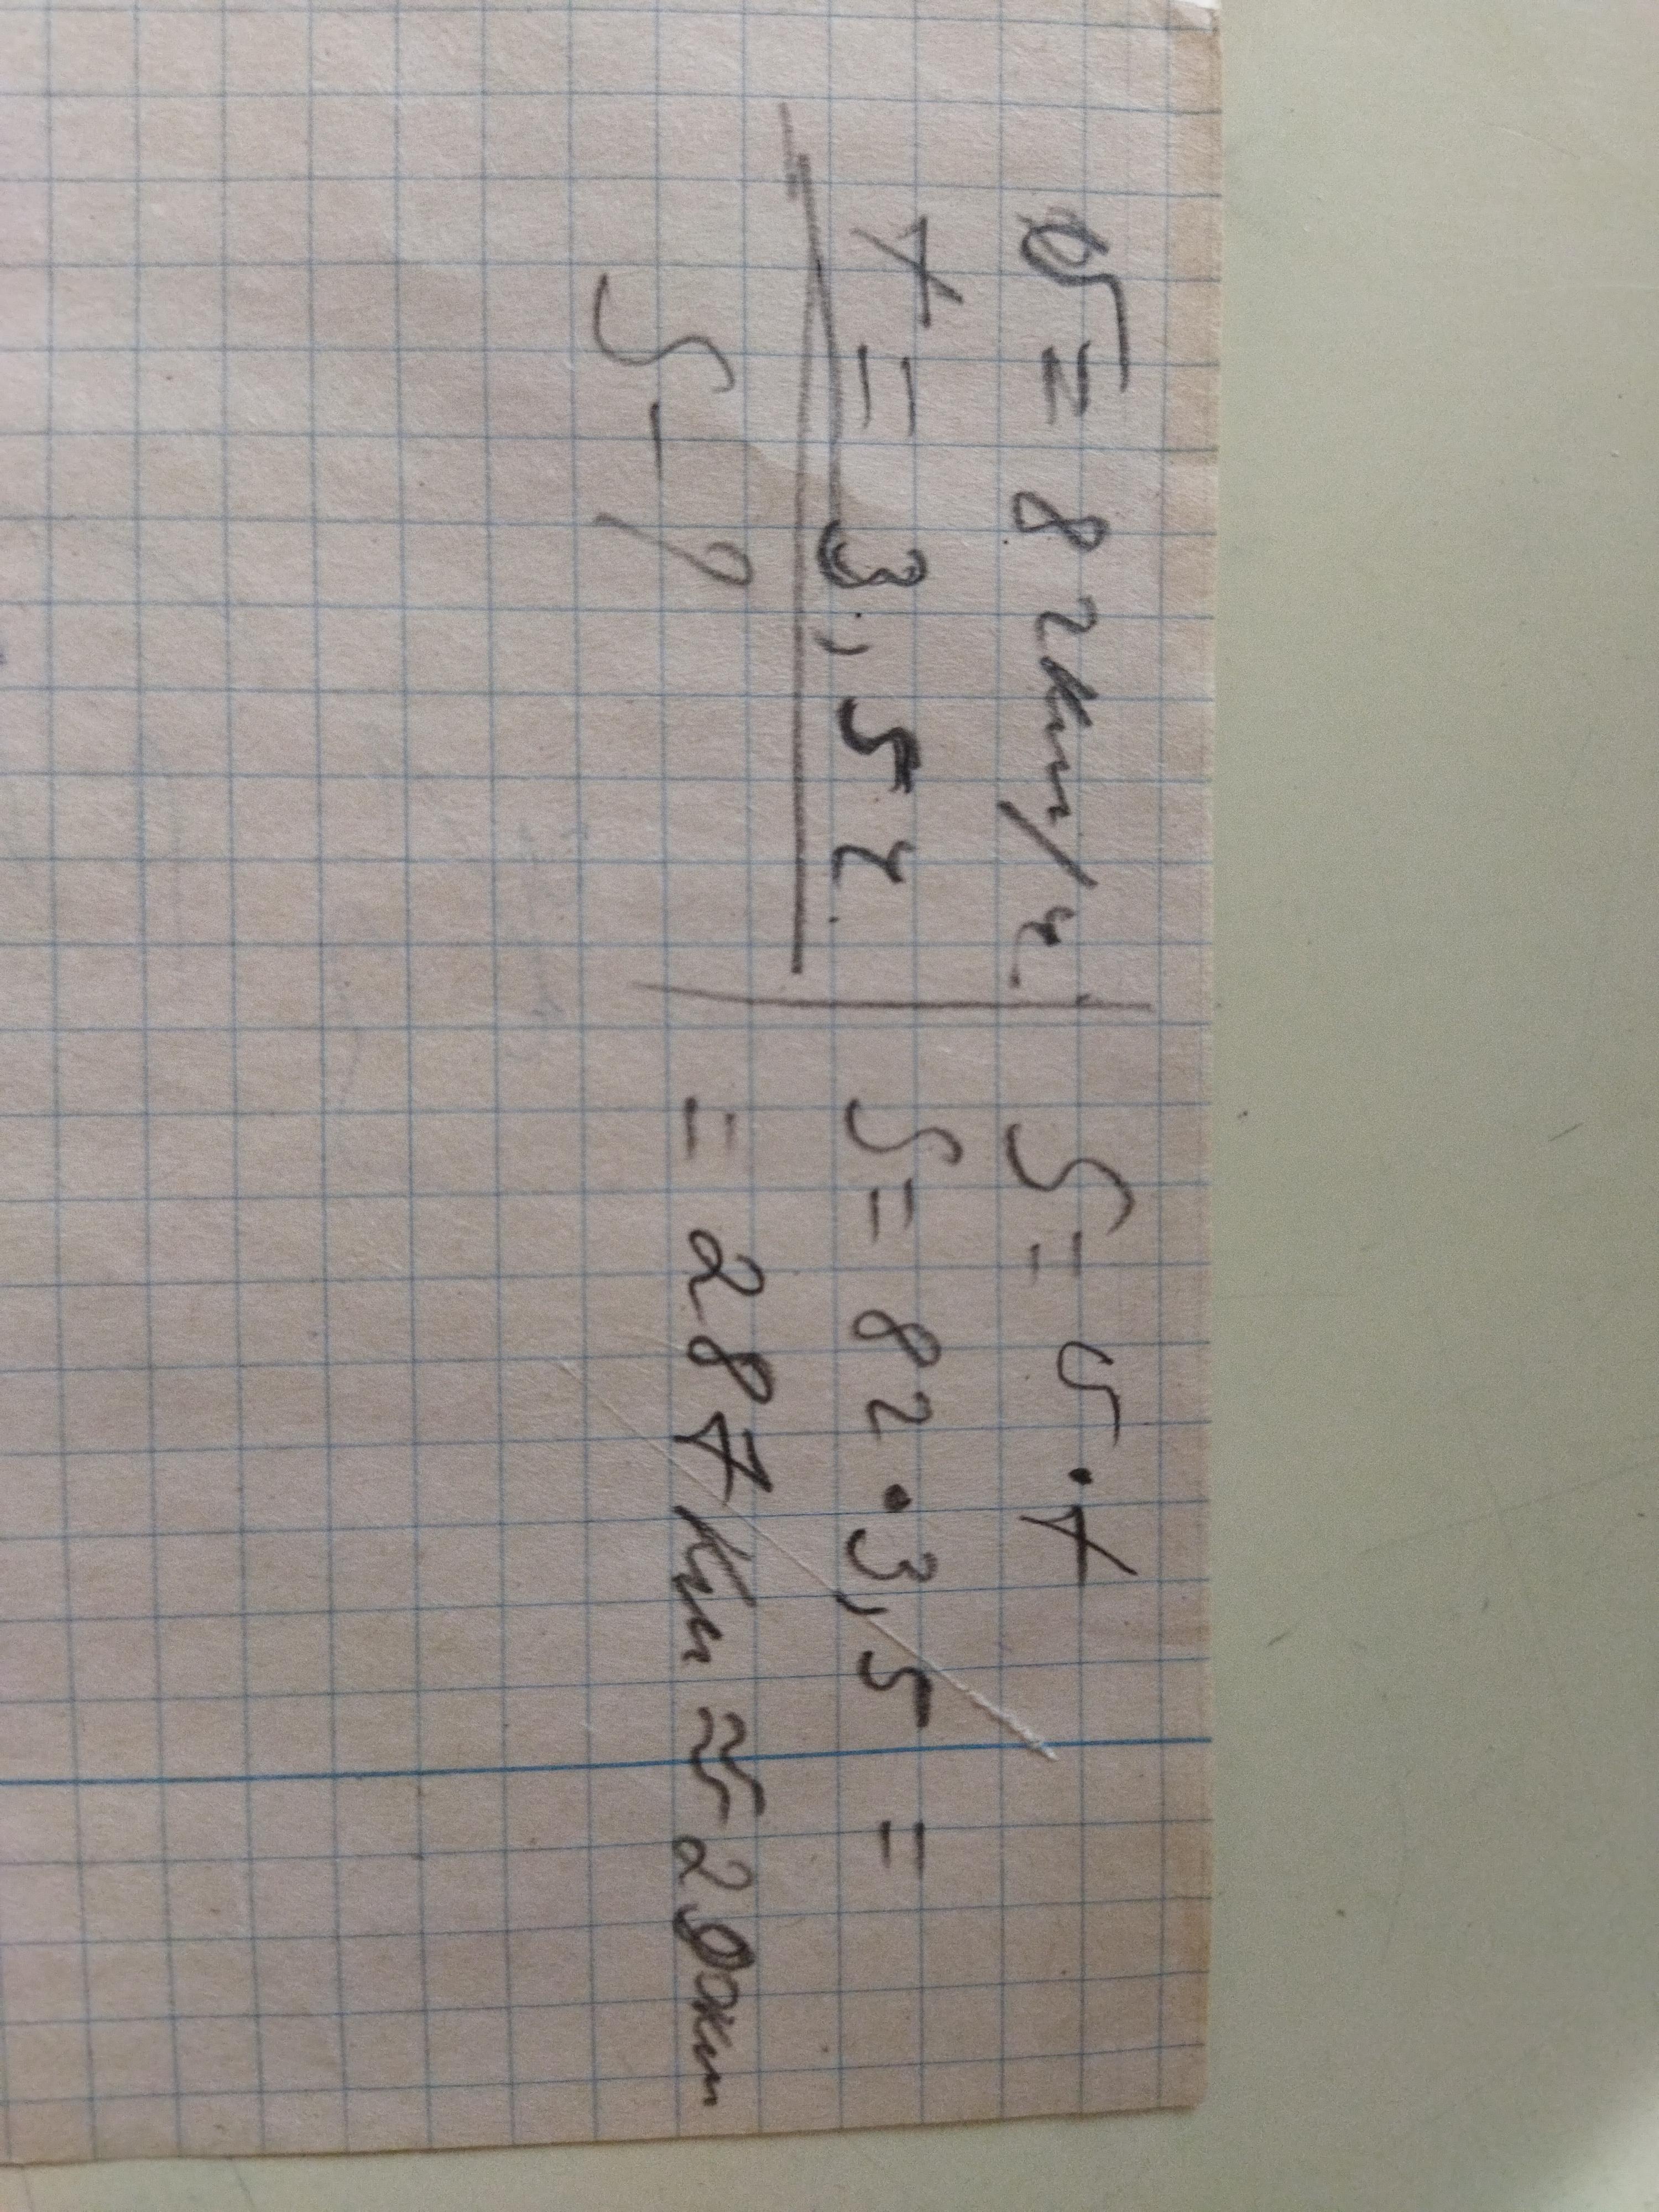 υ = 82км/ч.
t = 3,5 ч.
S - ?
S = υ · t
S = 82 · 3,5 =
= 287 км ≈ 290км